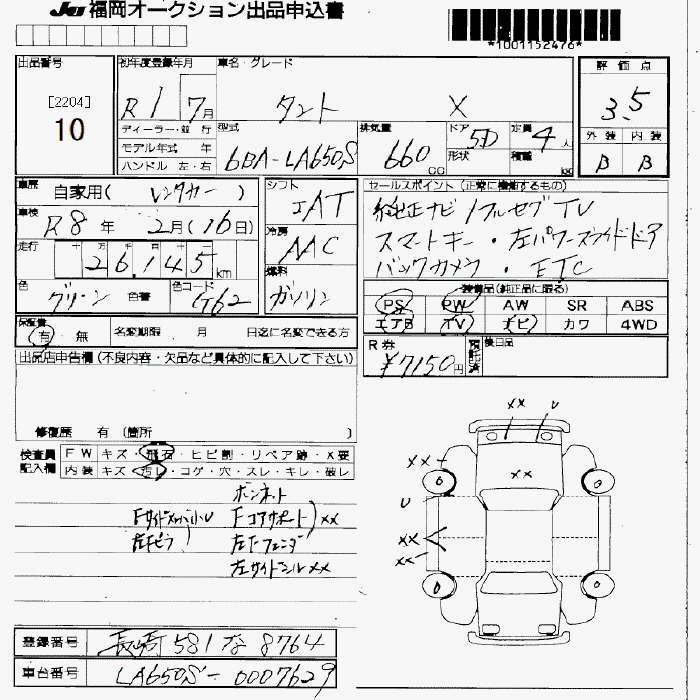 JU 福岡オークション出品申込書
*1001152476*
出品番号
[2204]
10
初年度登録年月
R1 7月
車名・グレード
タント X
評価点
3.5
外装 内装
B B
ディーラー・並行
モデル年式 年
ハンドル 左・右
型式
6BA-LA650S
排気量
660 cc
ドア
5D
形状
定員
4人
積載
kg
車歴
自家用(レンタカー)
車検
R8年 2月(16日)
走行
十万 万 千 百 十 一
26,145 km
色
グリーン
色替
色コード
G62
シフト
IAT
冷房
AAC
燃料
ガソリン
セールスポイント(正常に機能するもの)
純正ナビ/フルセグTV
スマートキー・左パワースライドドア
バックカメラ・ETC
装備品(純正品に限る)
PS PW AW SR ABS
エアB TV ナビ カワ 4WD
保証書
有・無
名変期限 月 日迄に名変できる方
R券
¥7150円
預託済
後日品
出品店申告欄(不良内容・欠品など具体的に記入して下さい)
修復歴 有(箇所 )
検査員記入欄
FW キズ・飛石・ヒビ割・リペア跡・X要
内装 キズ・汚レ・コゲ・穴・スレ・キレ・破レ
ボンネット
Fサイドメンバー小U
Fコアサポート)xx
左Fピラー
左Fフェンダー
左サイドシルxx
xx U
xx
xx
U
xx
xx
登録番号 長崎 581 な 8764
車台番号 LA650S-0007629